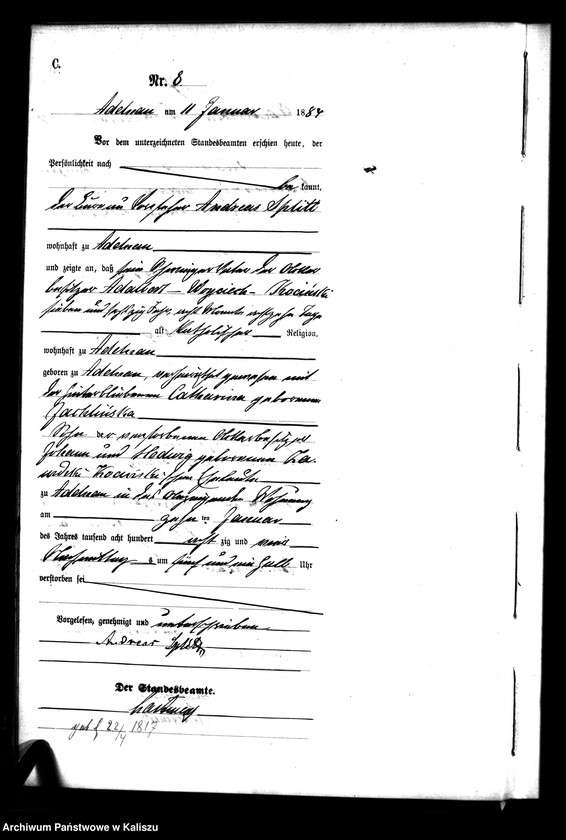 C.
Nr. 8
Adelnau am 11 Januar 1884
Vor dem unterzeichneten Standesbeamten erschien heute, der
Persönlichkeit nach
be kannt,
der Bureau Vorsteher Andreas Splitt
wohnhaft zu Adelnau
und zeigte an, daß sein Schwieger Vater der Acker
besitzer Adalbert – Woyciech – Kociński
sieben und sechszig Jahre acht Monate achtzehn Tage
alt Katholischer Religion,
wohnhaft zu Adelnau
geboren zu Adelnau, verheirathet gewesen mit
der hinterbliebenen Catharina geborenen
Sohn der verstorbenen Ackerbesitzer
Johann und Hedwig geborenen
Kociński'schen Eheleute
zu Adelnau in des Anzeigenden Wohnung
am zehn ten Januar
des Jahres tausend acht hundert acht zig und vier
Nachmittag s um fünf und ein halb Uhr
verstorben sei
Vorgelesen, genehmigt und unterschrieben
Andreas Splitt
Der Standesbeamte.
geb. d 22/4 1817
Archiwum Państwowe w Kaliszu